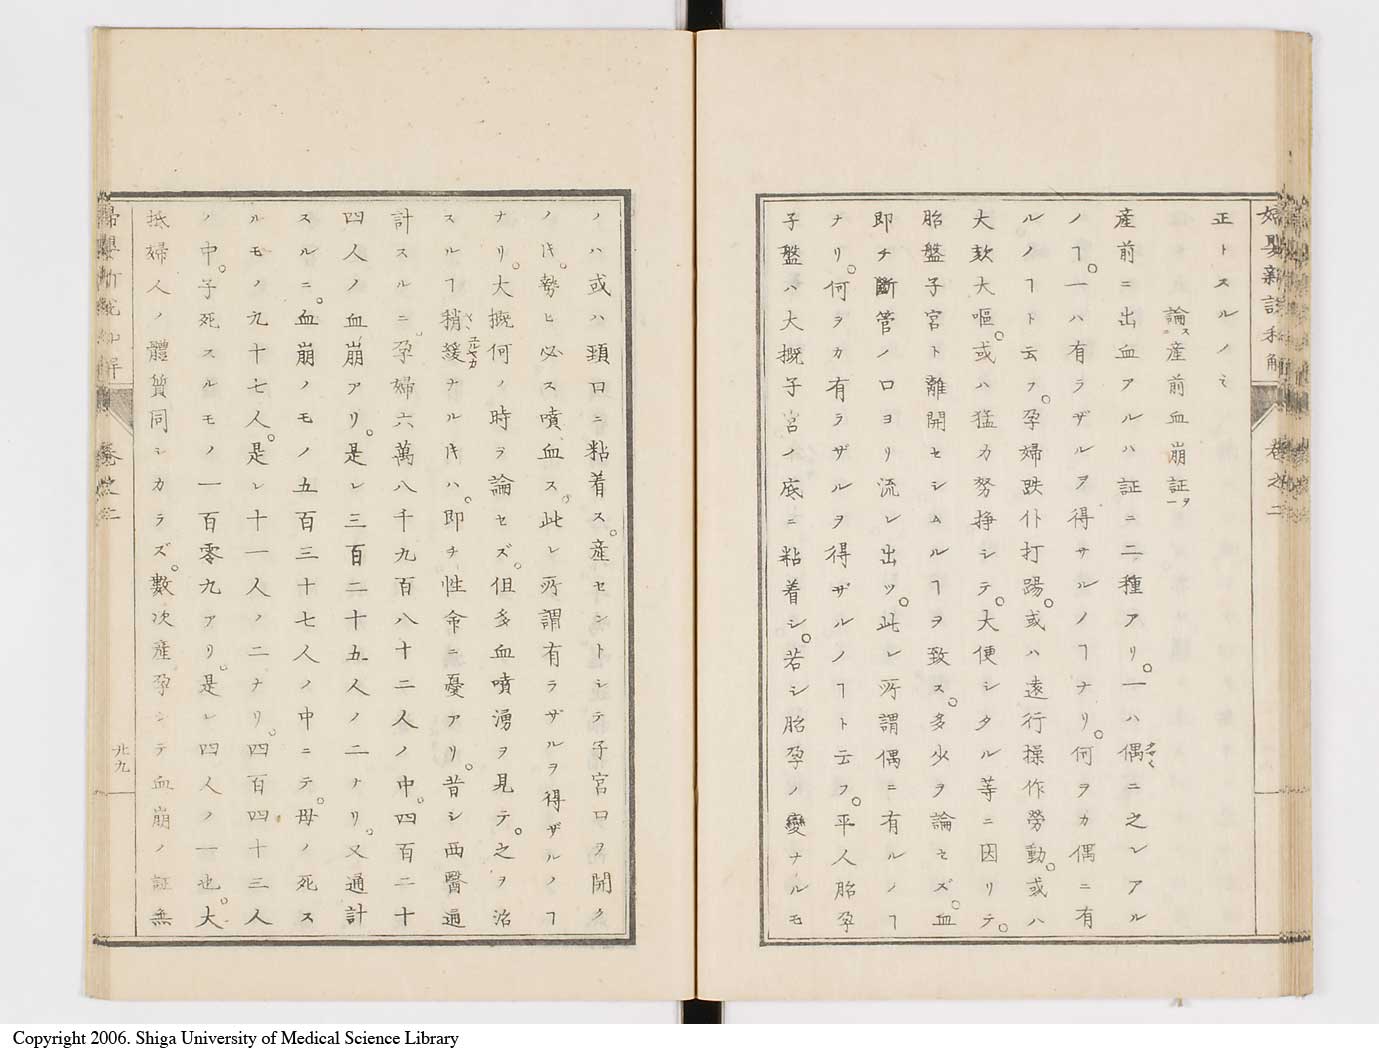 婦嬰新説和解
卷之二
正トスルノミ
論ス産前血崩証ヲ一
産前ニ出血アルハ証ニ二種アリ。一ハ偶ニ之レアル
ノヿ。一ハ有ラザルヲ得サルノヿナリ。何ヲカ偶ニ有
ルノヿト云フ。孕婦跌仆打踢。或ハ遠行操作勞動。或ハ
大欬大嘔。或ハ猛カ努掙シテ。大便シタル等ニ因リテ。
胎盤子宮ト離開セシムルヿヲ致ス。多少ヲ論セズ。血
即チ斷管ノ口ヨリ流レ出ツ。此レ所謂偶ニ有ルノヿ
ナリ。何ヲカ有ラザルヲ得ザルノヿト云フ。平人胎孕
子盤ハ大概子宮ノ底ニ粘着シ。若シ胎孕ノ變ナルモ
ノハ或ハ頚口ニ粘着ス。産セントシテ子宮口ヲ開ク
ノ𪜈。勢ヒ必ス噴血ス。此レ所謂有ラザルヲ得ザルノヿ
ナリ。大概何ノ時ヲ論セズ。但多血噴湧ヲ見テ。之ヲ治
スルヿ稍緩ナル𪜈ハ。即チ性命ニ憂アリ。昔シ西醫通
計スルニ。孕婦六萬八千九百八十二人ノ中。四百二十
四人ノ血崩アリ。是レ三百二十五人ノ二ナリ。又通計
スルニ。血崩ノモノ五百三十七人ノ中ニテ。母ノ死ス
ルモノ九十七人。是レ十一人ノ二ナリ。四百四十三人
ノ中。子死スルモノ一百零九アリ。是レ四人ノ一也。大
抵婦人ノ體質同シカラズ。數次産孕シテ血崩ノ証無
婦嬰新説和解
卷之二
廿九
Copyright 2006. Shiga University of Medical Science Library